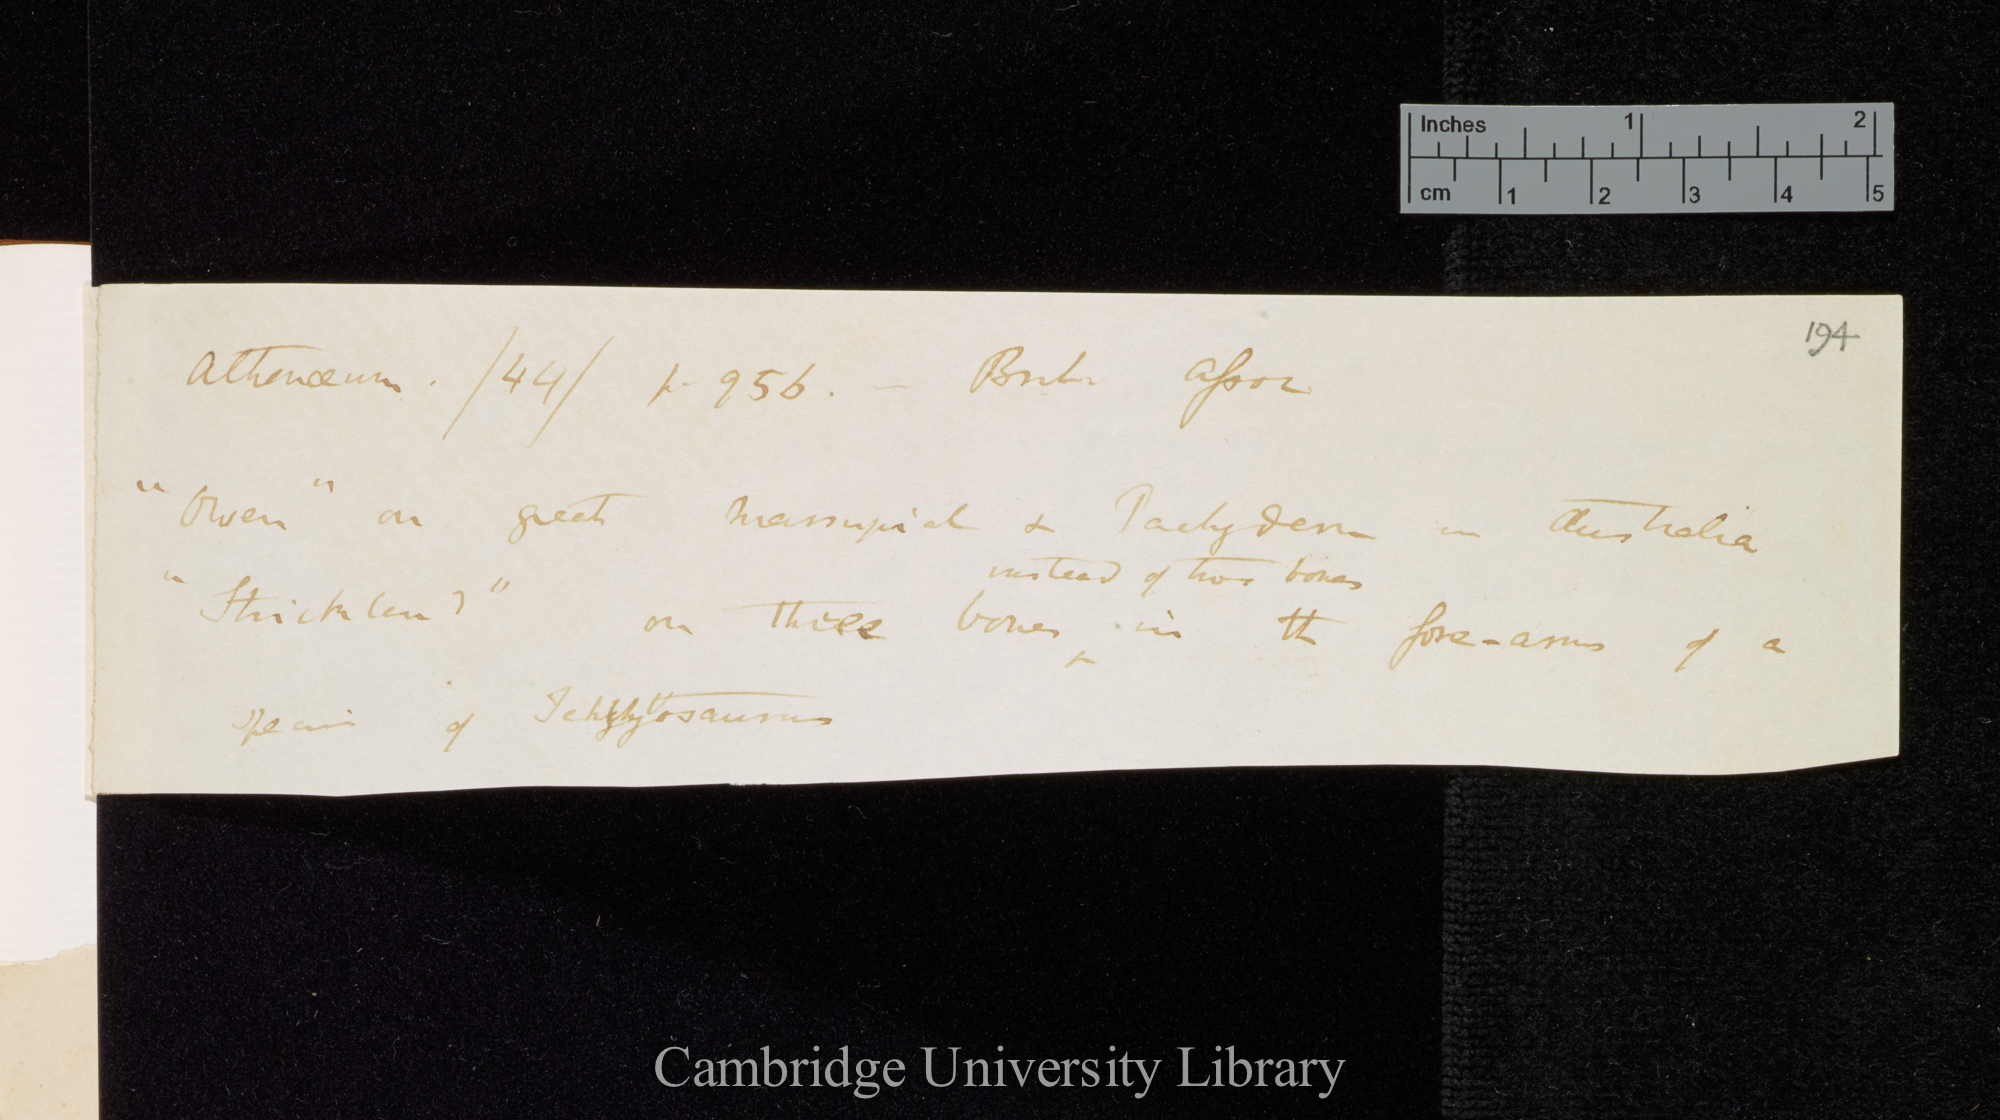 Inches 1 2
cm 1 2 3 4 5
194
Athenæum . /44/ p. 956. — Brit. Assoc
"Owen" on great Marsupial & Pachyderm in Australia
instead of two bones
"Strickland" on three bones ^ in the fore-arms of a
specimen of Ichthyosaurus
Cambridge University Library